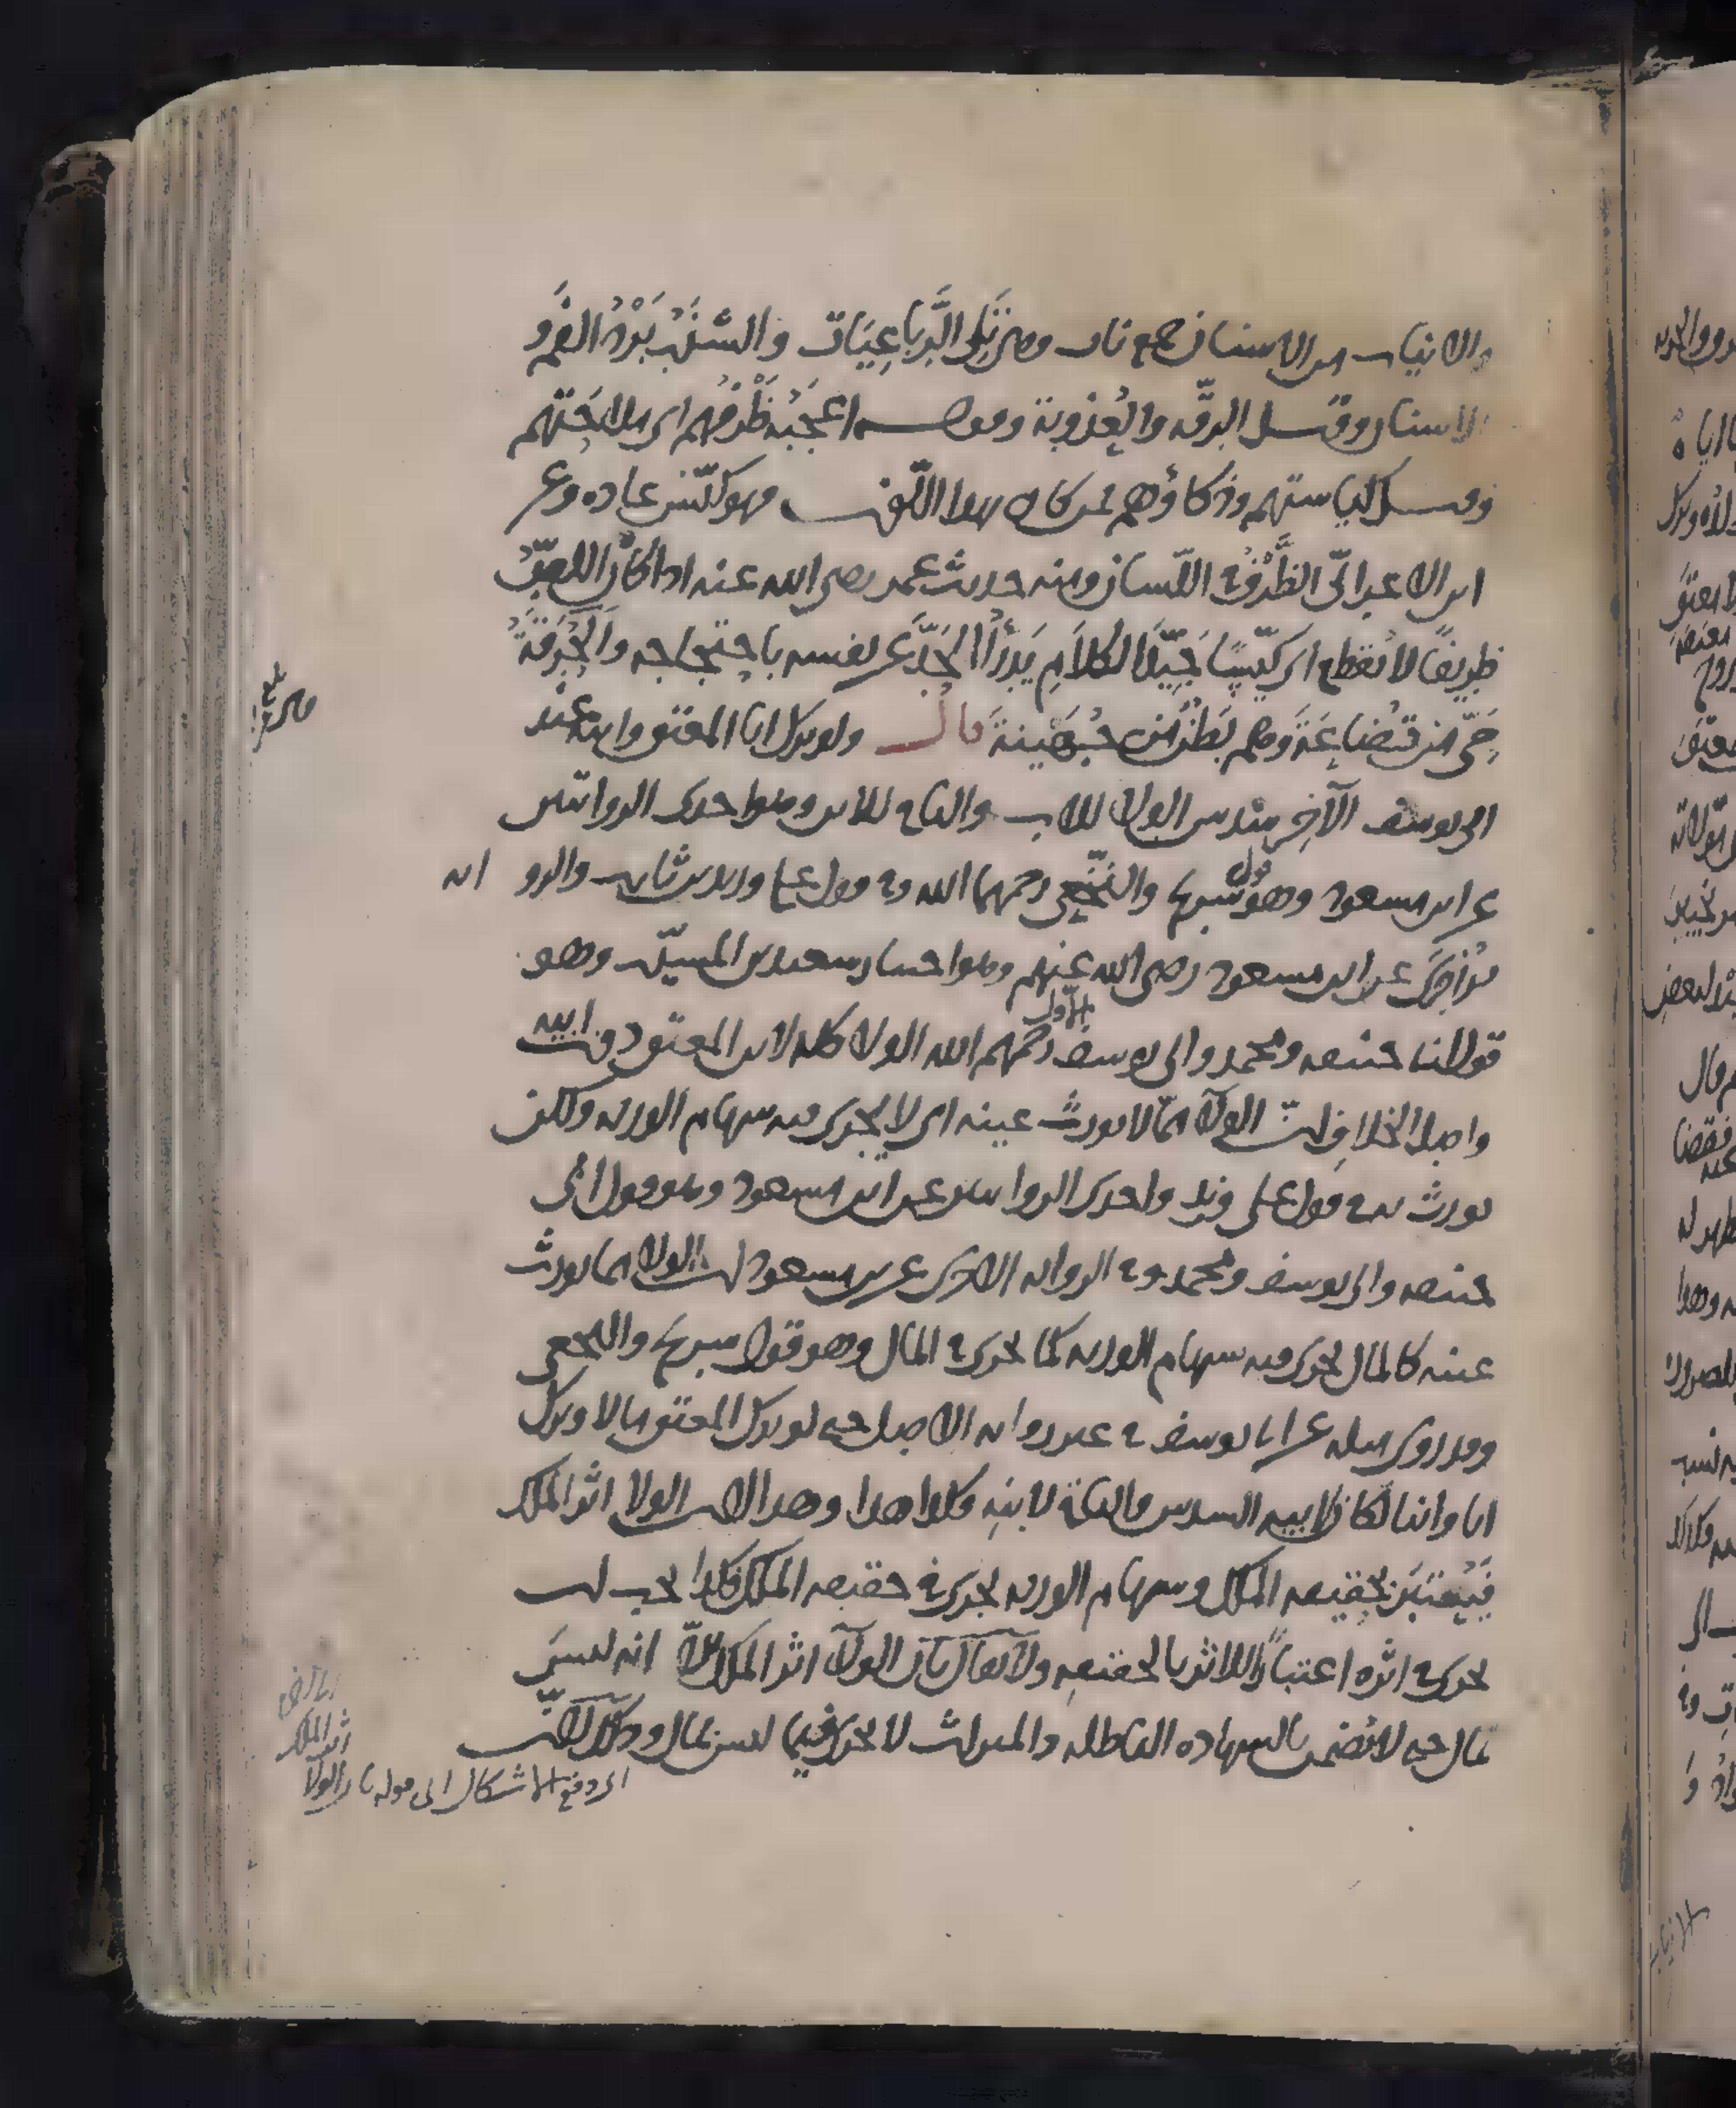 والانياب من الاسنان جمع ناب وهي تلى الرَّباعِيَات والشَّنَبُ بَرْدُ الفَم و
الاسنان وقيل الرقّه والعُذوبة وقوله اعجَبَهُ ظَرْفُهم اى ملاحَتهم
وقيل كياستهم وذكاؤهم ممن كان بهذا اللقب فهو كيّس عاده وعن
ابن الاعرابىّ الظَّرْفُ فى اللّسان ومنه حديث عمر رضى الله عنه اذا كان اللصّ
ظريفًا لا يُقطع اى كيّسًا جَيّدَ الكلامِ يَدْرَأُ الحَدَّ عن نفسه باحتجاجه والحُرَقَةُ
حَىّ من قُضاعَةَ وهم بَطْن من جُهَيْنة قال ولو ترك ابا المعتق وابنه عند
ابى يوسف الآخِر سدس الولا للاب والباقى للابن وهو احدى الروايتين
عن ابن مسعود وهو قول شريح والنَّخَعى رحمهما الله وفى قول على وزيد بن ثابت والرو ايه
الاخرى عن ابن مسعود رضى الله عنهم وهو اختيار سعيد بن المسيّب وهو
قول ابى حنيفه ومحمد وابى يوسف الاول رحمهم الله الولا كله لابن المعتق دون ابيه
واصل الخلاف ان الولآ مما لا يورث عينه اى لا يجرى فيه سهام الورثه ولكن
يورث به فى قول على وزيد واحدى الروايتين عن ابن مسعود وهو قول ابى
حنيفه وابى يوسف ومحمد وفى الروايه الاخرى عن ابن مسعود ان الولا مما يورث
عينه كالمال يجرى فيه سهام الورثه كما يجرى فى المال وهو قول شريح والنخعى
وقد روى مثله عن ابى يوسف فى غير روايه الاصل حتى لو ترك المعتق مالا وترك
ابا وابنا لكان لابيه السدس والباقى لابنه فكذا هذا وهذا لان الولا اثر الملك
فيُعتبَر بحقيقه الملك وسهام الورثه تجرى فى حقيقه الملك فكذا يجب ان
تجرى فى اثره اعتبارًا للاثر بالحقيقه ولا يقال بان الولآ اثر الملك الاّ انه ليس
بمال حتى لا يُضمن بالشهاده الباطله والميراث لا يجرى فيما ليس بمال وذلك لان
اثر الملك
اى دفع الاشكال الى قوله بان الولا